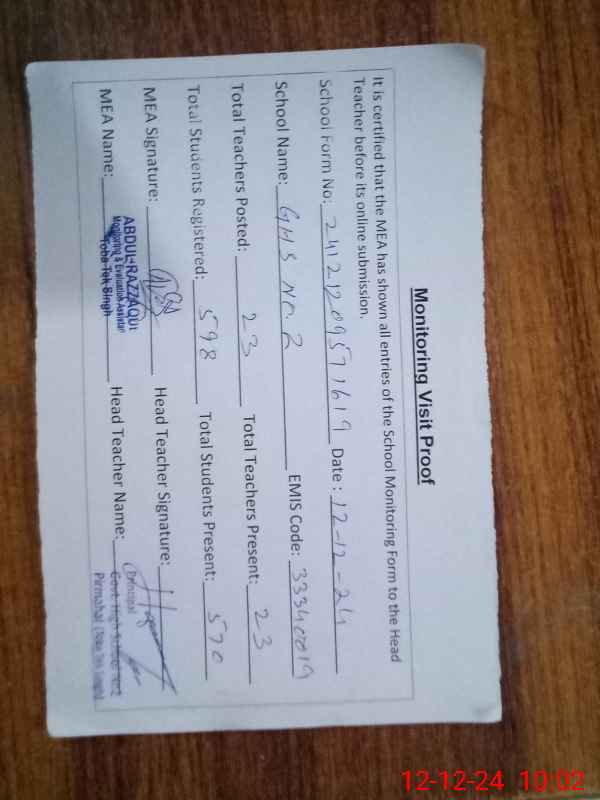 Monitoring Visit Proof
It is certified that the MEA has shown all entries of the School Monitoring Form to the Head
Teacher before its online submission.
School Form No: 24121209571619 Date : 12-12-24
School Name: GHS NO. 2 EMIS Code: 33340019
Total Teachers Posted: 23 Total Teachers Present: 23
Total Students Registered: 598 Total Students Present: 570
MEA Signature: Head Teacher Signature:
ABDUL-RAZZAQUE
Monitoring & Evaluation Assistant
Toba Tek Singh
MEA Name: Head Teacher Name:
Principal
Govt. High School No.2
Pirmahal (Toba Tek Singh)
12-12-24 10:02